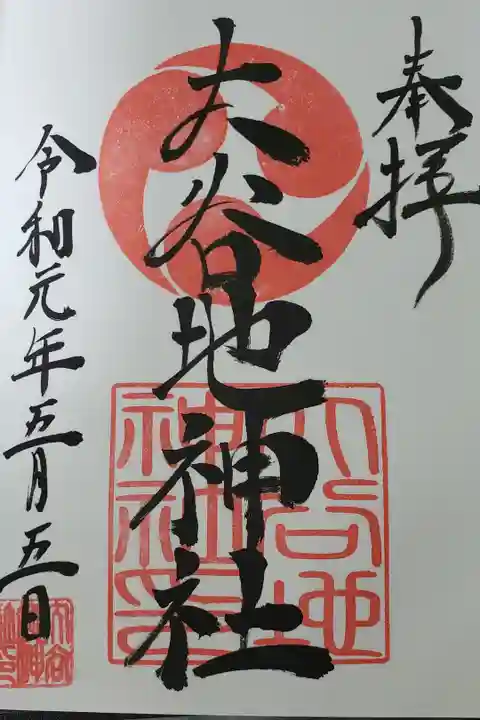 奉拝
大谷地神社
大谷地
神社印
令和元年五月五日